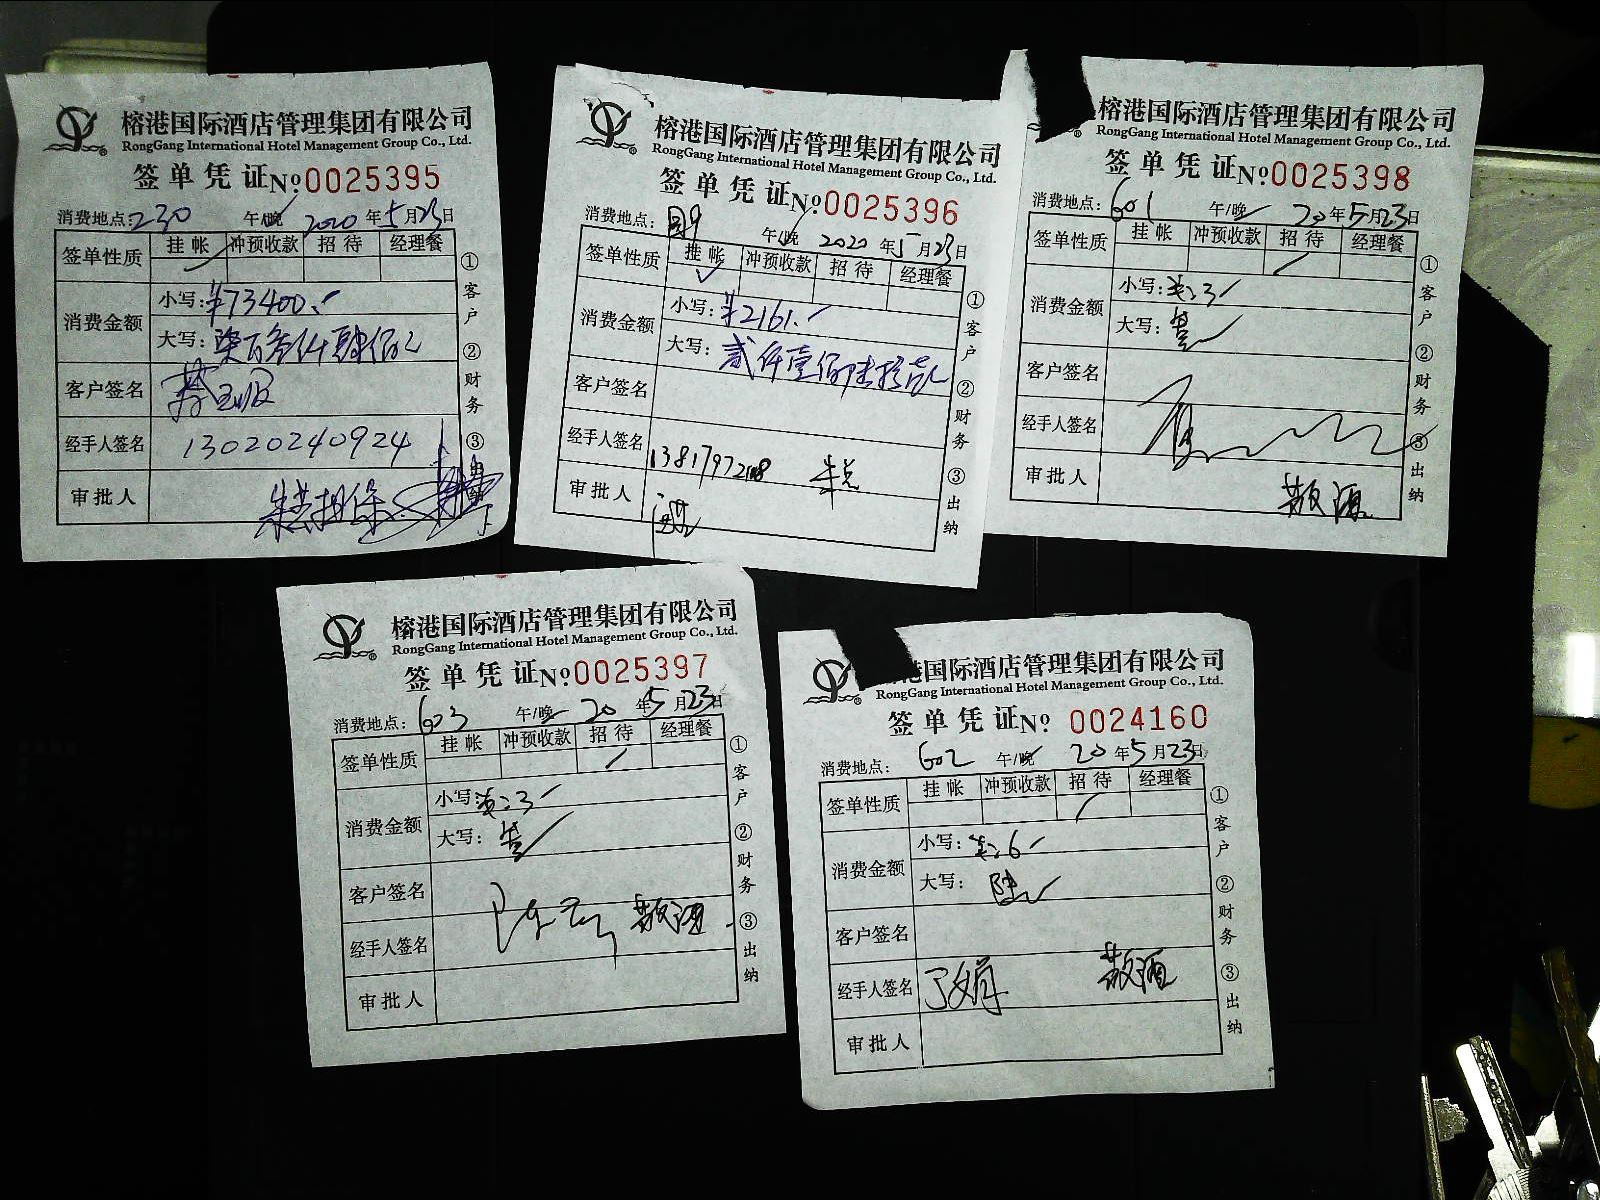 榕港国际酒店管理集团有限公司
RongGang International Hotel Management Group Co., Ltd.
签单凭证№0025395
消费地点：230 午/晚 2020年5月23日
签单性质 挂帐 冲预收款 招待 经理餐
消费金额 小写：¥73400.
大写：柒万叁仟肆佰
客户签名
经手人签名 13020240924
审批人 担保
①客户 ②财务 ③出纳
榕港国际酒店管理集团有限公司
RongGang International Hotel Management Group Co., Ltd.
签单凭证№0025396
消费地点： 午/晚 2020年5月23日
签单性质 挂帐 冲预收款 招待 经理餐
消费金额 小写：¥2161.
大写：贰仟壹佰陆拾壹元
客户签名
经手人签名
审批人
①客户 ②财务 ③出纳
榕港国际酒店管理集团有限公司
RongGang International Hotel Management Group Co., Ltd.
签单凭证№0025398
消费地点：601 午/晚 2020年5月23日
签单性质 挂帐 冲预收款 招待 经理餐
消费金额 小写：
大写：
客户签名
经手人签名
审批人
①客户 ②财务 ③出纳
榕港国际酒店管理集团有限公司
RongGang International Hotel Management Group Co., Ltd.
签单凭证№0025397
消费地点：603 午/晚 20年5月23日
签单性质 挂帐 冲预收款 招待 经理餐
消费金额 小写：
大写：
客户签名
经手人签名
审批人
①客户 ②财务 ③出纳
国际酒店管理集团有限公司
RongGang International Hotel Management Group Co., Ltd.
签单凭证№ 0024160
消费地点：602 午/晚 20年5月23日
签单性质 挂帐 冲预收款 招待 经理餐
消费金额 小写：
大写：陆
客户签名
经手人签名
审批人
①客户 ②财务 ③出纳